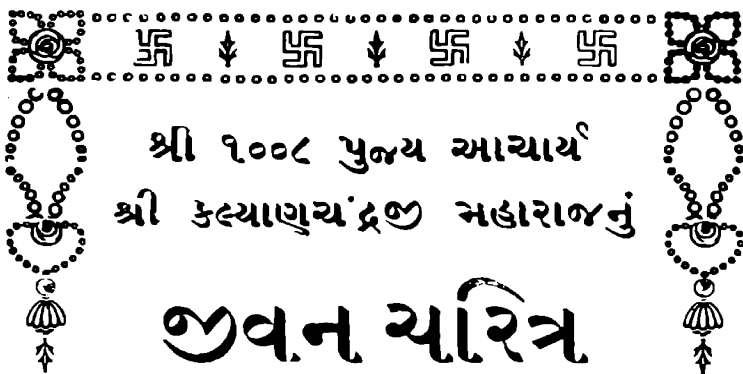 શ્રી ૧૦૦૮ પુજ્ય આચાર્ય
શ્રી કલ્યાણચંદ્રજી મહારાજનું
જીવન ચરિત્ર